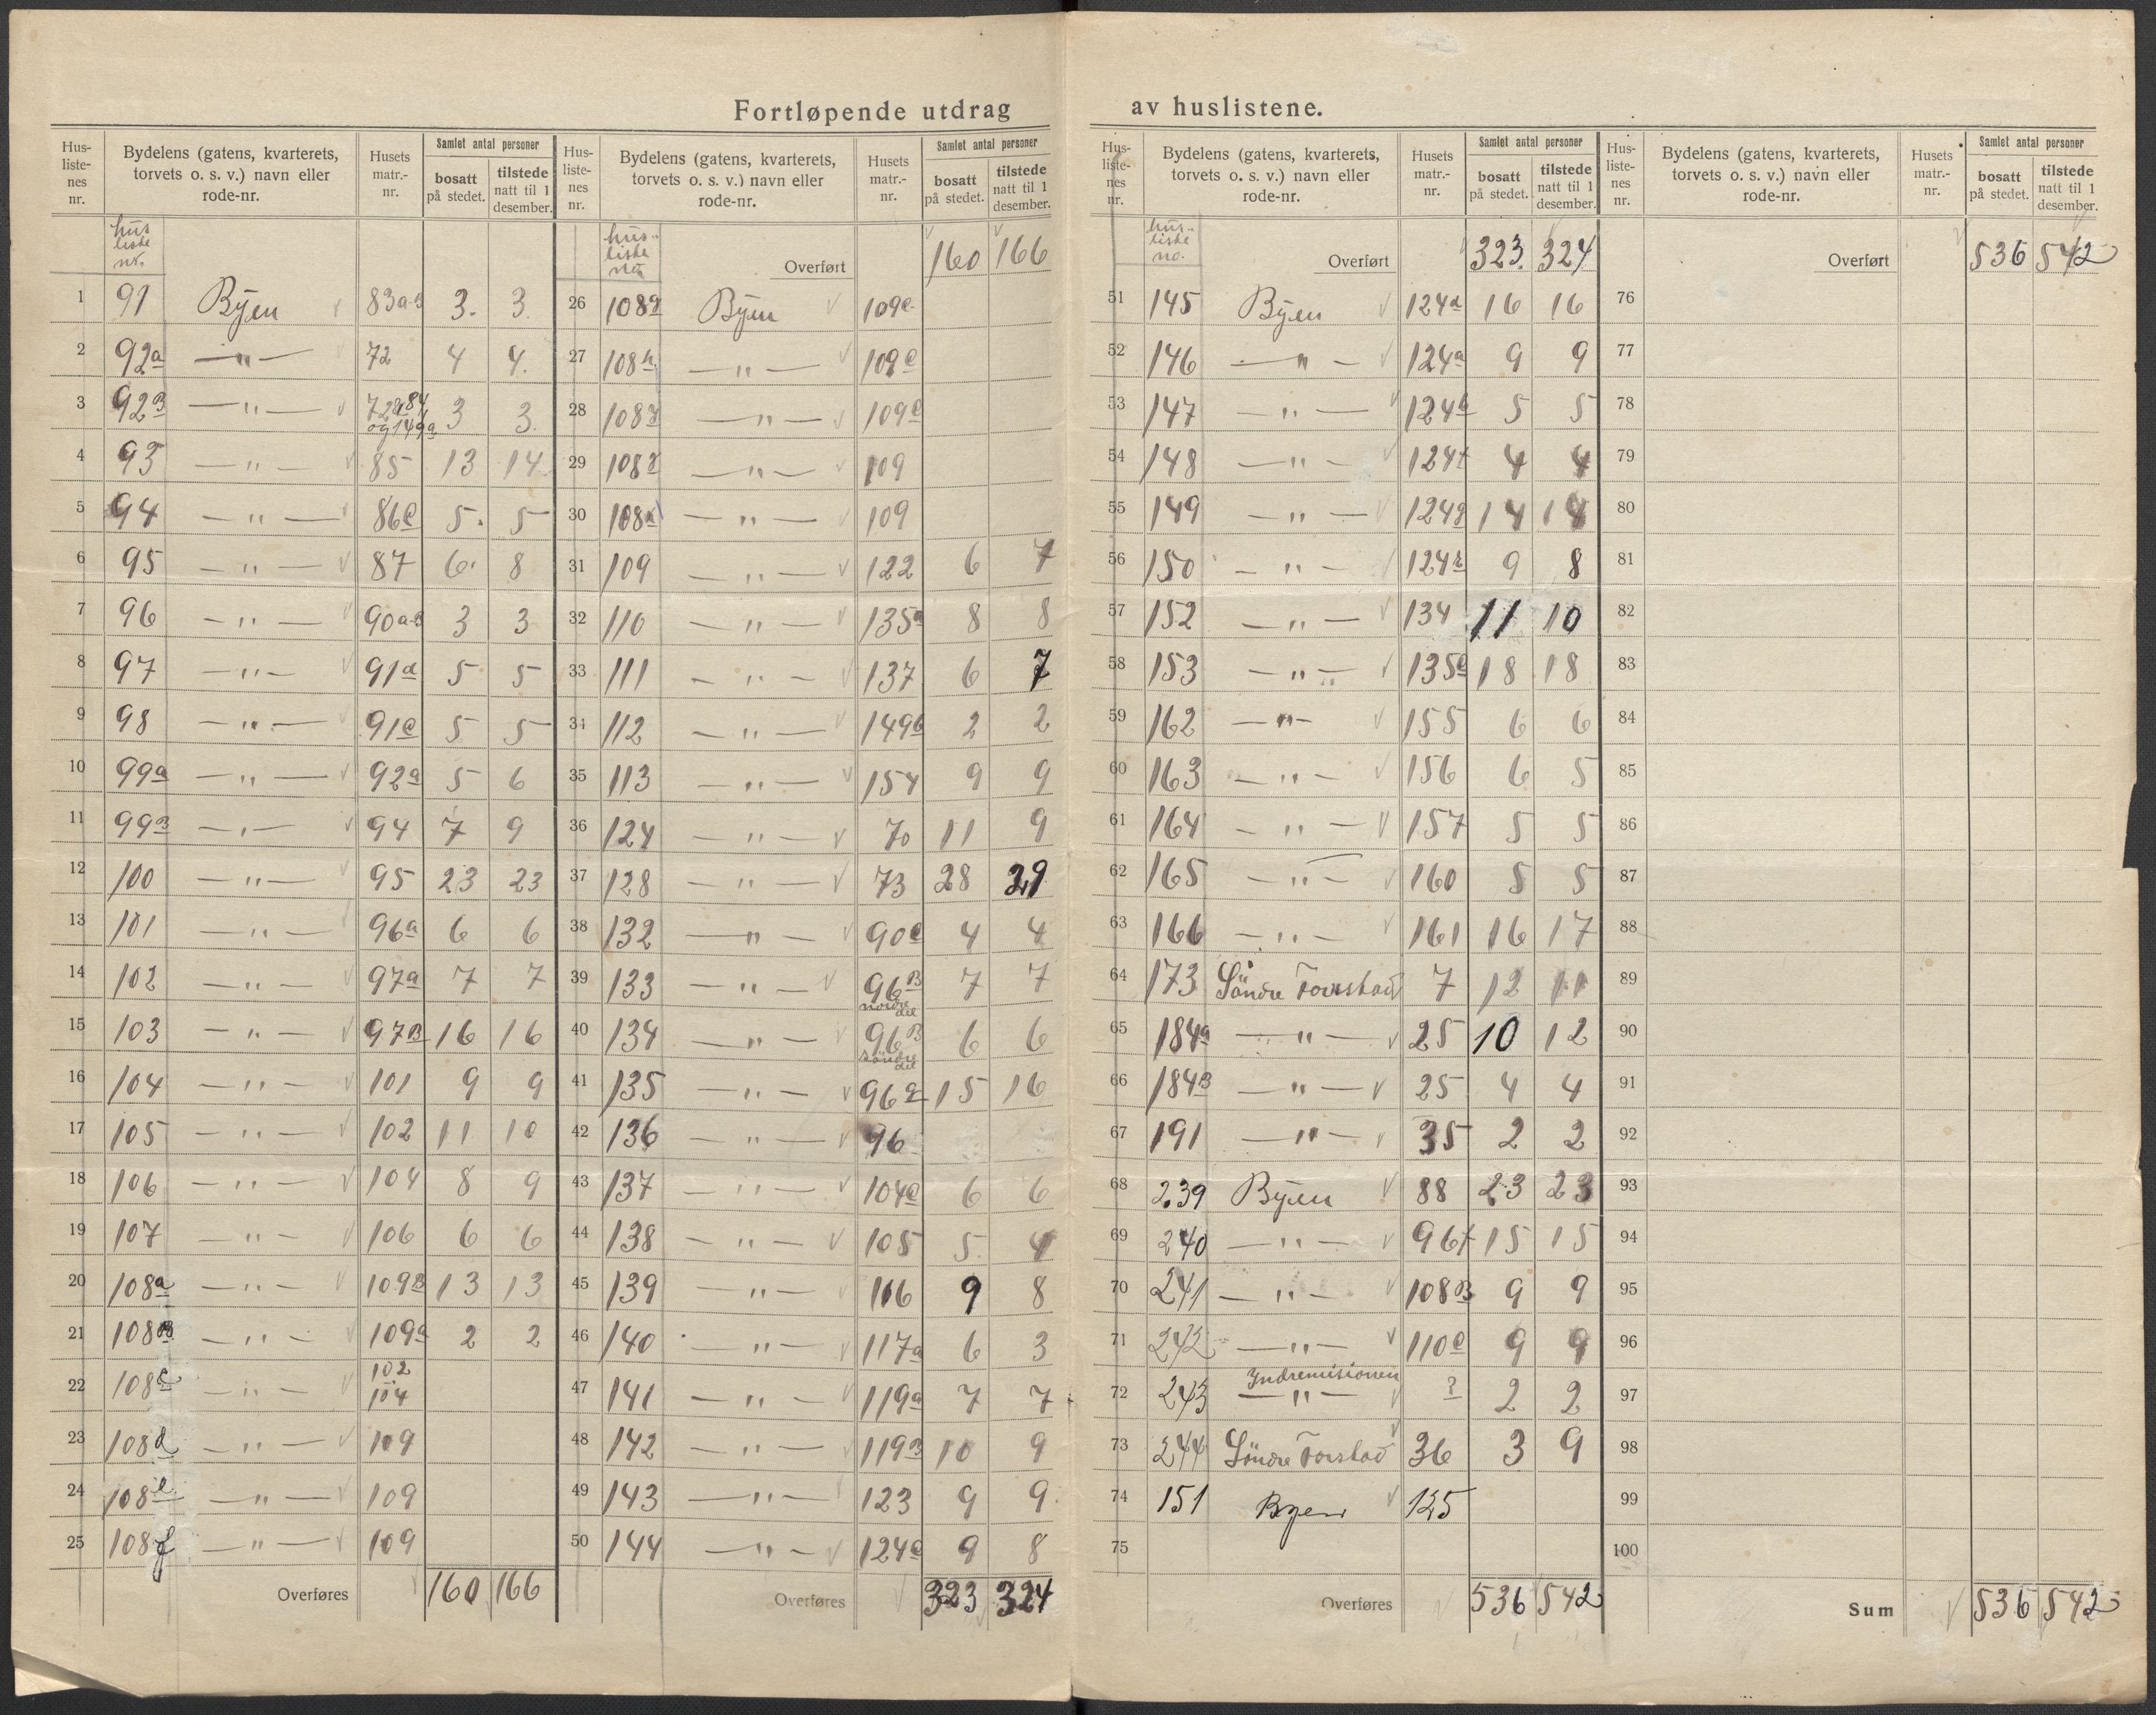 Fortløpende utdrag av huslistene.
Hus-listenes nr. | Bydelens (gatens, kvarterets, torvets o. s. v.) navn eller rode-nr. | Husets matr.-nr. | Samlet antal personer bosatt på stedet. | tilstede natt til 1 desember.
hus liste nr.
1 91 Byen 83a-b 3. 3.
2 92a —"— 72 4 4.
3 92B —"— 72a84 og 149a 3 3.
4 93 —"— 85 13 14
5 94 —"— 86c 5. 5
6 95 —"— 87 6. 8
7 96 —"— 90a-B 3 3
8 97 —"— 91d 5 5
9 98 —"— 91c 5 5
10 99a —"— 92a 5 6
11 99B —"— 94 7 9
12 100 —"— 95 23 23
13 101 —"— 96a 6 6
14 102 —"— 97a 7 7
15 103 —"— 97B 16 16
16 104 —"— 101 9 9
17 105 —"— 102 11 10
18 106 —"— 104 8 9
19 107 —"— 106 6 6
20 108a —"— 109B 13 13
21 108B —"— 109a 2 2
22 108c —"— 102 104
23 108d —"— 109
24 108e —"— 109
25 108f —"— 109
Overføres 160 166
Hus-listenes nr. | Bydelens (gatens, kvarterets, torvets o. s. v.) navn eller rode-nr. | Husets matr.-nr. | Samlet antal personer bosatt på stedet. | tilstede natt til 1 desember.
hus-liste no
Overført 160 166
26 108g Byen 109c
27 108h —"— 109c
28 108 —"— 109c
29 108 —"— 109
30 108k —"— 109
31 109 —"— 122 6 7
32 110 —"— 135a 8 8
33 111 —"— 137 6 7
34 112 —"— 149b 2 2
35 113 —"— 154 9 9
36 124 —"— 70 11 9
37 128 —"— 73 28 29
38 132 —"— 90c 4 4
39 133 —"— 96B nordre del 7 7
40 134 —"— 96B søndre del 6 6
41 135 —"— 96 15 16
42 136 —"— 96
43 137 —"— 104c 6 6
44 138 —"— 105 5 4
45 139 —"— 116 9 8
46 140 —"— 117a 6 3
47 141 —"— 119a 7 7
48 142 —"— 119B 10 9
49 143 —"— 123 9 9
50 144 —"— 124c 9 8
Overføres 323 324
Hus-listenes nr. | Bydelens (gatens, kvarterets, torvets o. s. v.) navn eller rode-nr. | Husets matr.-nr. | Samlet antal personer bosatt på stedet. | tilstede natt til 1 desember.
hus-liste no.
Overført 323. 324
51 145 Byen 124d 16 16
52 146 —"— 124a 9 9
53 147 —"— 124b 5 5
54 148 —"— 124f 4 4
55 149 —"— 124g 14 14
56 150 —"— 124h 9 8
57 152 —"— 134 11 10
58 153 —"— 135c 18 18
59 162 —"— 155 6 6
60 163 —"— 156 6 5
61 164 —"— 157 5 5
62 165 —"— 160 5 5
63 166 —"— 161 16 17
64 173 Söndre Forstad 7 12 11
65 184a —"— 25 10 12
66 184B —"— 25 4 4
67 191 —"— 35 2 2
68 239 Byen 88 23 23
69 240 —"— 96f 15 15
70 241 —"— 108B 9 9
71 242 —"— 110c 9 9
72 243 Indremisionen —"— ? 2 2
73 244 Söndre Forstad 36 3 9
74 151 Byen 125
75
Overføres 536 542
Hus-listenes nr. | Bydelens (gatens, kvarterets, torvets o. s. v.) navn eller rode-nr. | Husets matr.-nr. | Samlet antal personer bosatt på stedet. | tilstede natt til 1 desember.
Overført 536 542
76
77
78
79
80
81
82
83
84
85
86
87
88
89
90
91
92
93
94
95
96
97
98
99
100
Sum 536 542